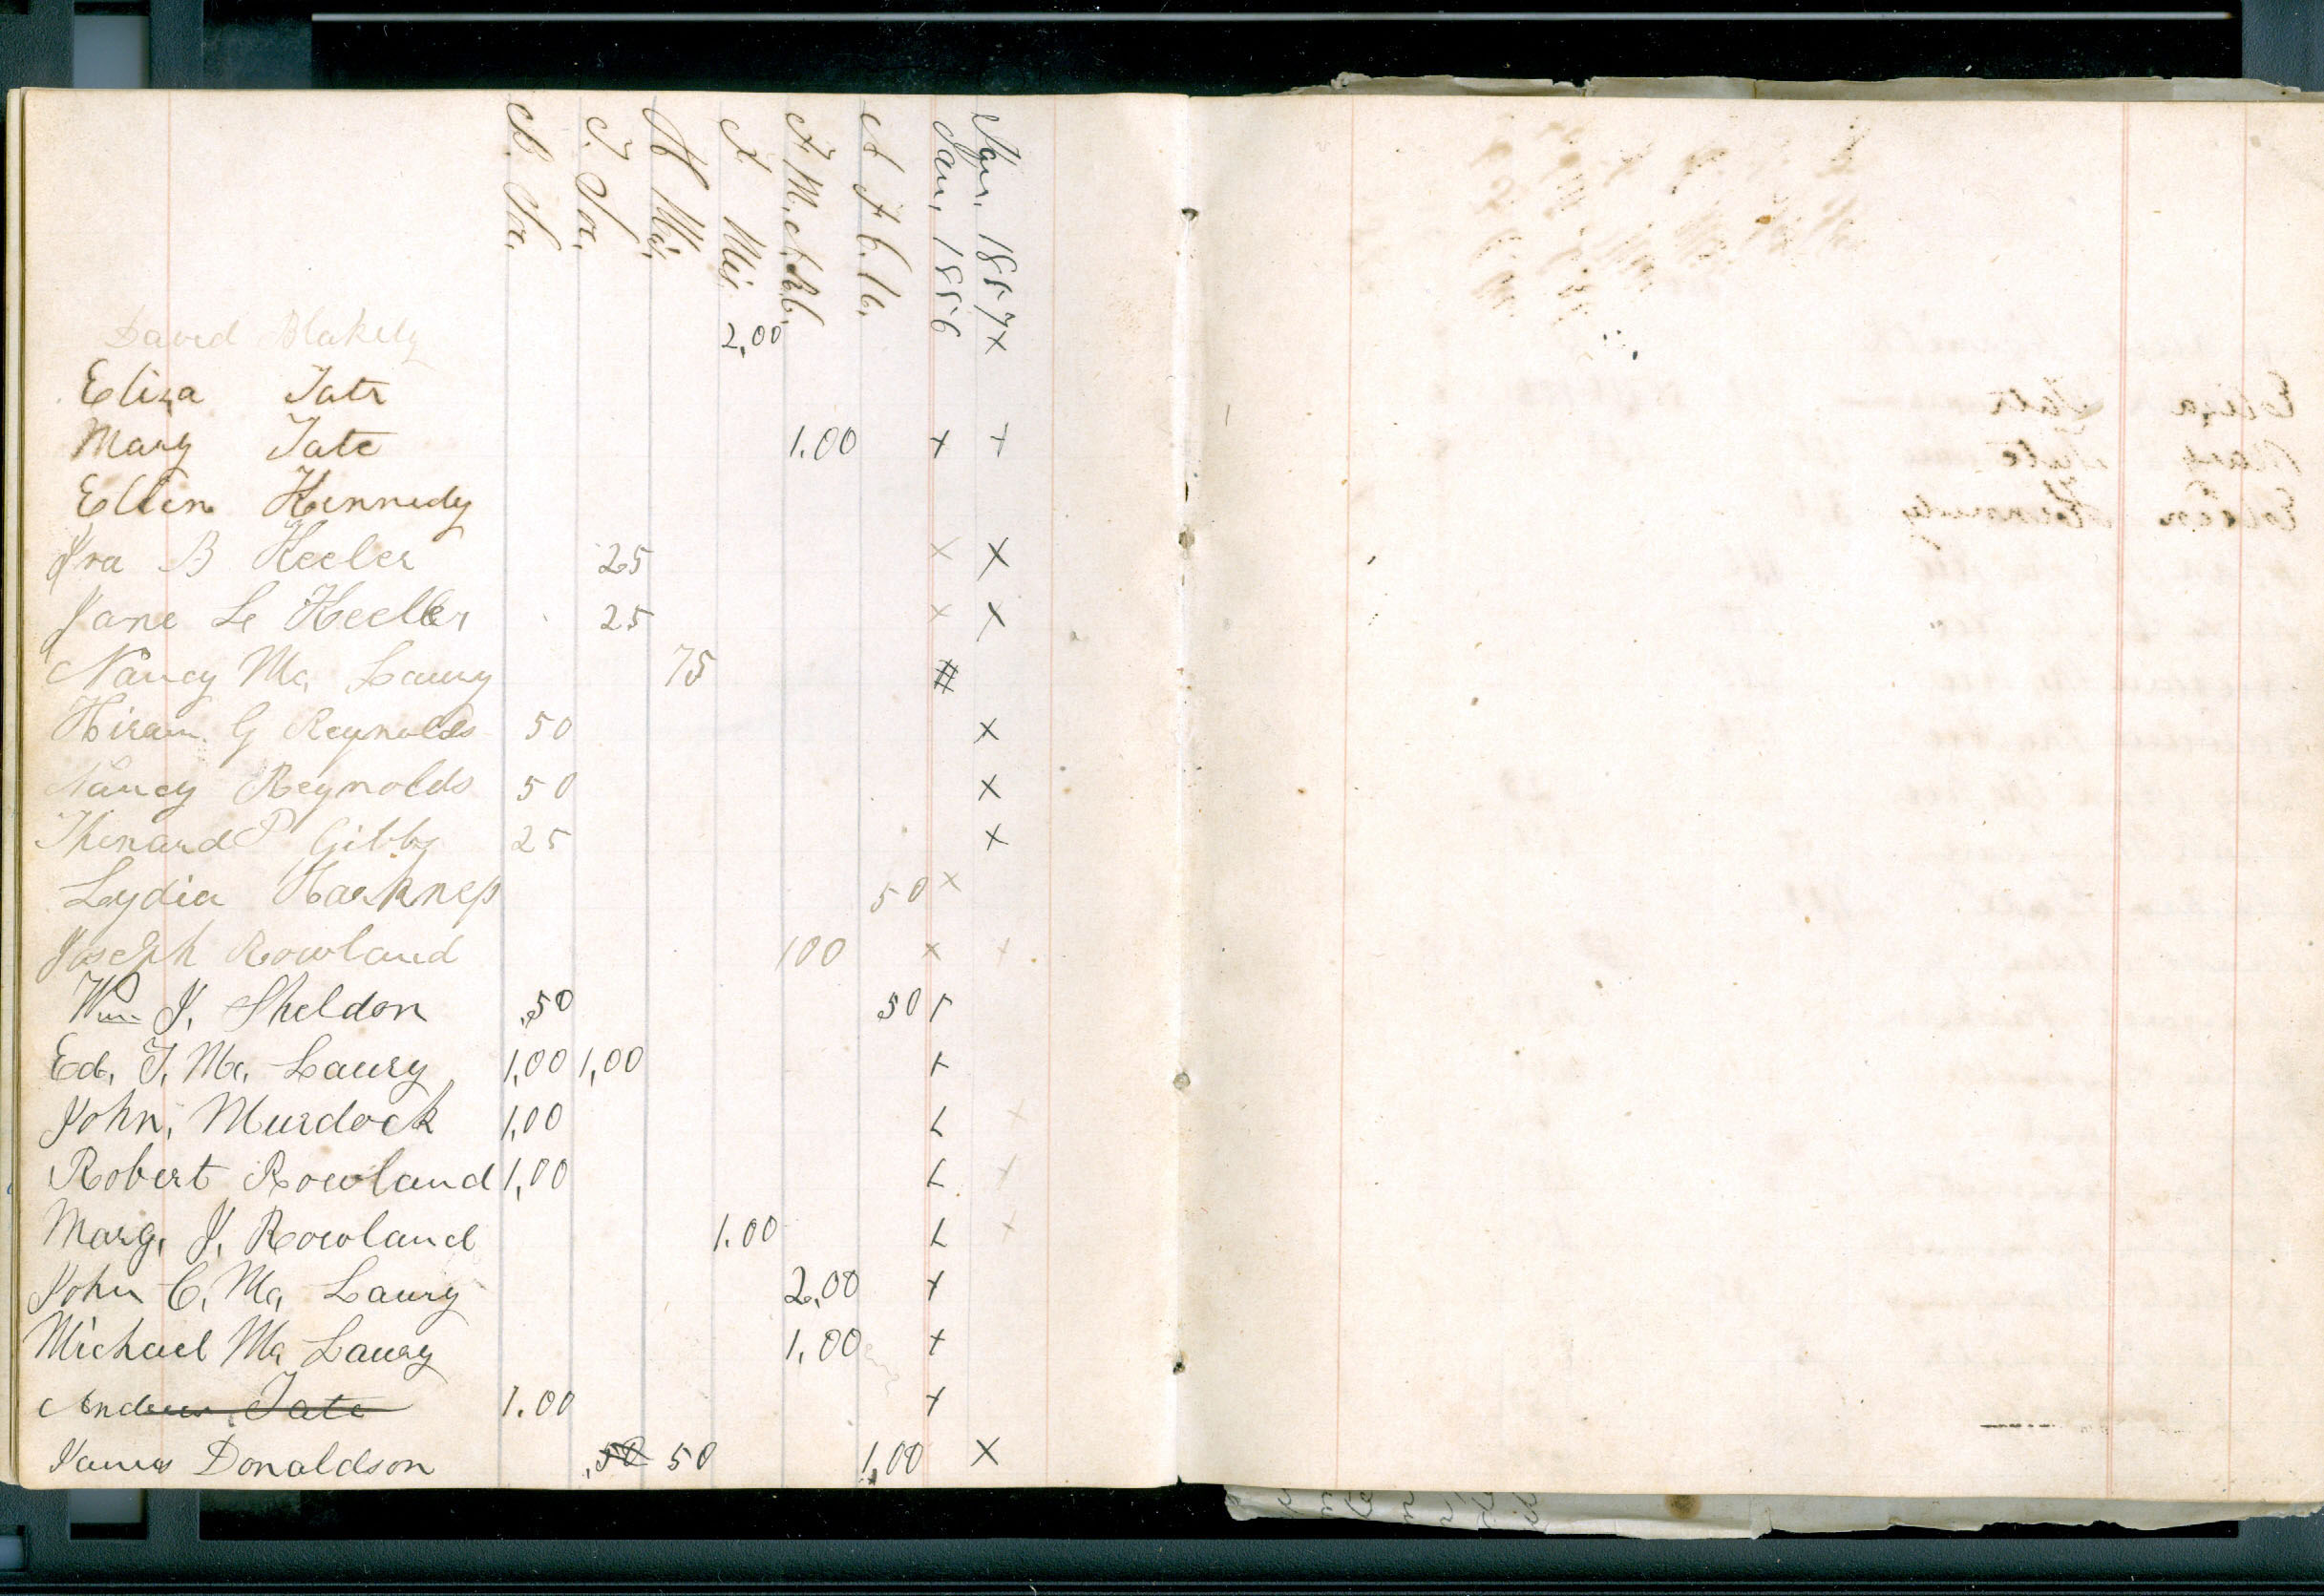 Jan. 1857
Jan. 1856
David Blakely 2,00 x
Eliza Tate
Mary Tate 1.00 + +
Ellen Kennedy
Ira B Keeler 25 x x
Jane Le Keeler 25 x x
Nancy Mc, Laury 75 #
Hiram G Reynolds 50 x
Nancy Reynolds 50 x
Thenard P Gibby 25 x
Lydia Harkness 50 x
Joseph Rowland 100 x +
Wm J. Sheldon .50 50
Ed, T. Mc, Laury 1,00 1,00 +
John, Murdock 1,00 x
Robert Rowland 1,00 +
Marg, J. Rowland 1.00 +
John C. Mc, Laury 2,00 +
Michael Mc Laury 1,00 +
Andrew Tate 1.00 +
James Donaldson .50 50 1,00 x